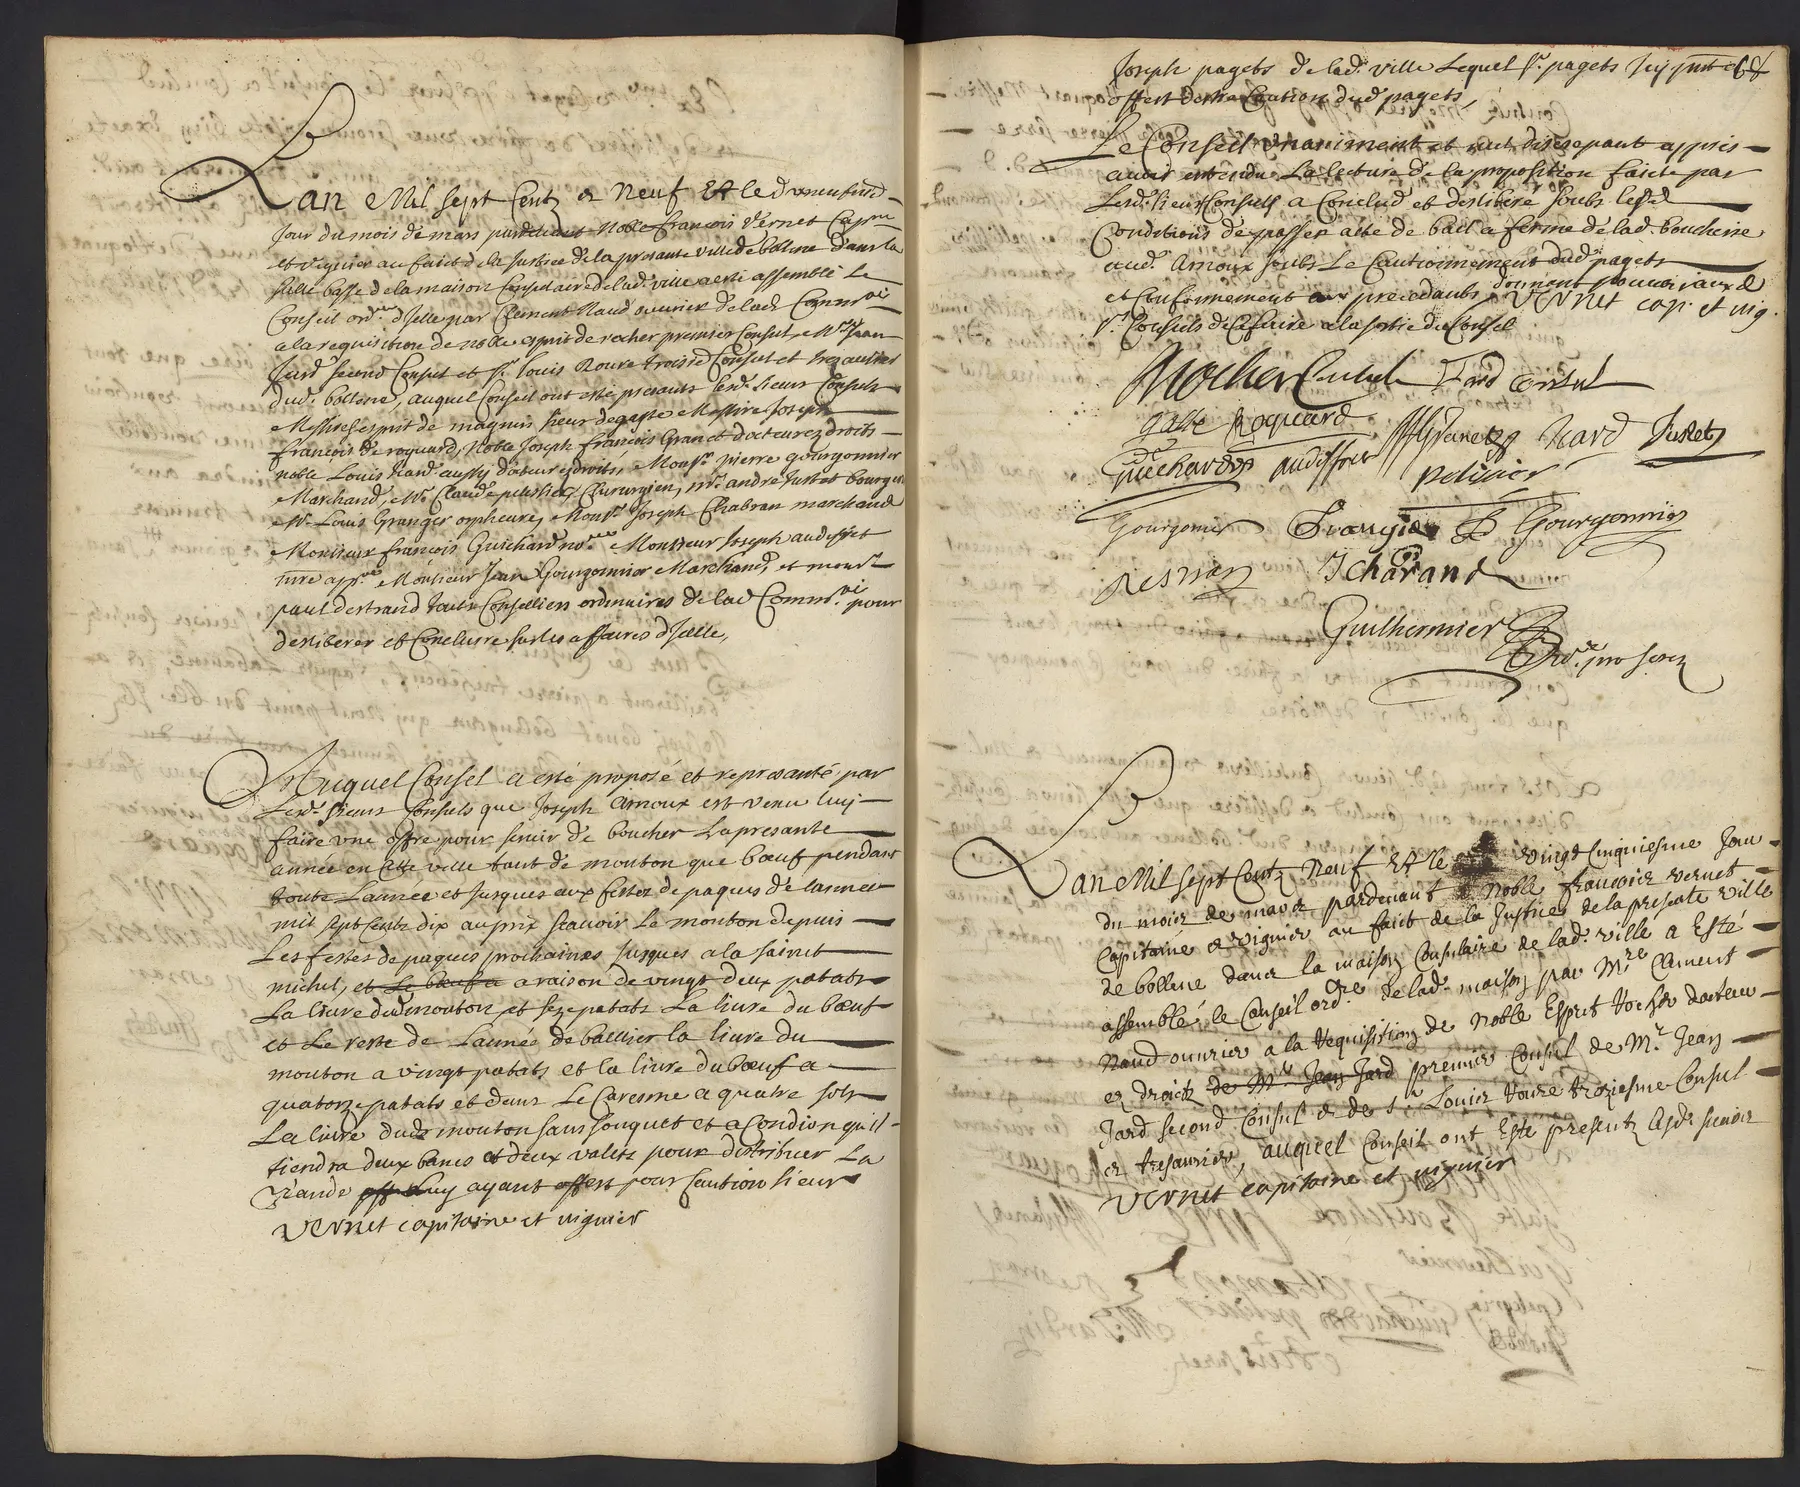 Lan Mil sept Centz & Neuf Et le
Jour du mois de mars pardevant Noble françois Vernet Cap.ne
et viguier au faict de la Justice de la presante ville de bollene dans la
salle basse de la maison Consulaire de lad. ville a esté assemblé Le
Conseil ord.re d'Icelle par Clement Naud ouvrier de lad. Comm.té
a la requisition de noble esprit de rocher premier Consul, M.re Jean
Jard second Consul et s.r Louis Roure troisie Consul et trezaurier
dud. bollene, auquel Conseil ont esté presants lesd. sieurs Consuls
Messire esprit de magnin sieur de gaste Messire Joseph
françois de roquard, Noble Joseph françois Granet docteur ez droits
noble Louis Jard aussy docteur ez droits, Mons.r pierre gourgonnier
Marchand, M.e Claude pelissier Chirurgien, M.r andre Justet bourgeois
M.e Louis Granger orpheure, Mons.r Joseph Chabran marchand
Monsieur françois Guichard no.re Monsieur Joseph audiffret
Monsieur Jean Gourgonnier Marchand, et mons.r
paul desrand tous Conselliers ordinaires de lad Comm.té pour
deslibérer et Conclurre sur les affaires d'Icelle,
Auquel Consel a esté proposé et representé par
Lesd. sieurs Consuls que Joseph Arnoux est venu luy
faire une offre pour servir de boucher La presante
année en Cette ville tant de mouton que bœuf pendant
toute L'année et Jusques aux festes de paques de l'année
mil sept Centz dix au prix scavoir Le mouton depuis
Les festes de paques prochaines Jusques a la sainct
michel, et Le bœuf a a raison de vingt deux patats
La livre dud mouton et seze patats La livre du bœuf
et Le reste de L'année de baillier la livre du
mouton a vingt patats et la livre du bœuf a
quatorze patats et dans Le Caresme a quatre sols
La livre dud. mouton sans souquet et a Condion qu'il
tiendra deux bancs et deux valets pour distribuer La
viande luy ayant offert pour Caution sieur
Vernet capitaine et viguier
Joseph pagets de lad. ville Lequel s.r pagets Icy 68
offert destre Caution dud pagets,
Le Conseil unaniment et nul discrepant appres
avoir entendu La lecture de la proposition faicte par
Lesd. sieurs Consuls a Conclud et deslibéré soubs lesd
Conditions de passer acte de bail a ferme de lad. boucherie
aud. Arnoux soubs Le Cautionnement dud pagets
et Conformement aux precedants donnent pouvoir auxd
s.rs Consuls de Ce faire a la sortie du Consel Vernet cap. et vig.
Rocher Consul Jard Consul
gaste Roquard Granet Jard Justet
Guichard audiffret pelissier
Gourgonnier Granger Gourgonnier
desran J Chabrand
Guilhermier
Lan Mil sept Centz Neuf Et le vingt Cinquiesme Jour
du mois de mars pardevant Noble françois Vernet
Capitaine & viguier au faict de la Justice de la presante ville
de bollene dans la maison Consulaire de lad. ville a Esté
assemblé le Conseil ord.re de lad. maison par M.re Clement
Naud ouvrier a la requisition de Noble Esprit rocher docteur
ez droitz de M.r Jean Jard premier Consul de M.r Jean
Jard second Consul & de s.r Louis roure troziesme Consul
& tresaurier, auquel Conseil ont Esté presentz lesd. sieurs
Vernet capitaine et viguier